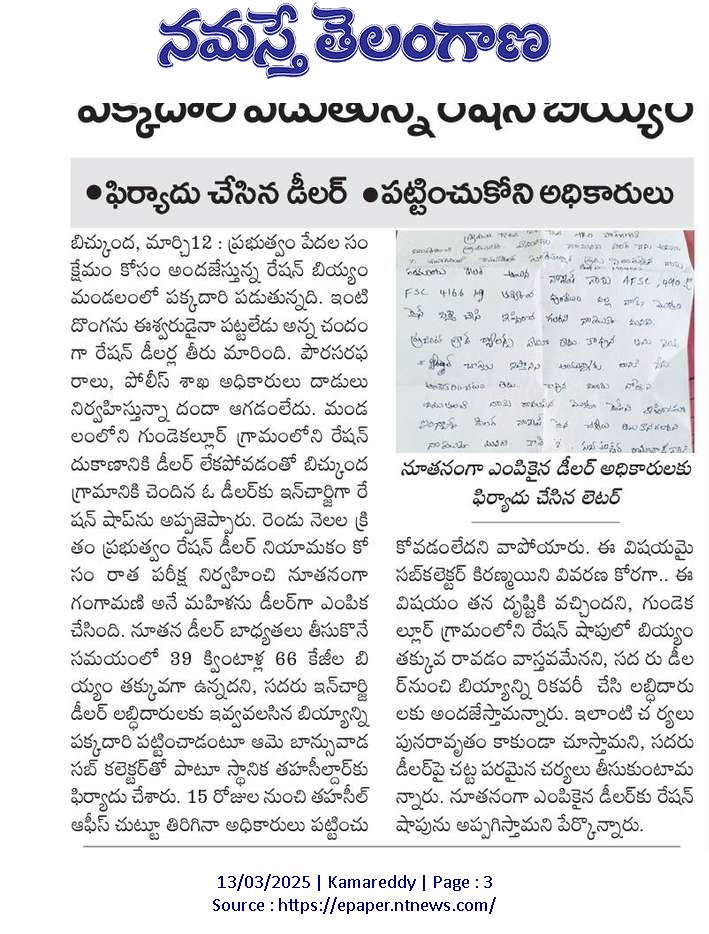 నమస్తే తెలంగాణ
పక్కదారి పడుతున్న రేషన్ బియ్యం
●ఫిర్యాదు చేసిన డీలర్ ●పట్టించుకోని అధికారులు
బిచ్కుంద, మార్చి12 : ప్రభుత్వం పేదల సం
క్షేమం కోసం అందజేస్తున్న రేషన్ బియ్యం
మండలంలో పక్కదారి పడుతున్నది. ఇంటి
దొంగను ఈశ్వరుడైనా పట్టలేడు అన్న చందం
గా రేషన్ డీలర్ల తీరు మారింది. పౌరసరఫ
రాలు, పోలీస్ శాఖ అధికారులు దాడులు
నిర్వహిస్తున్నా దందా ఆగడంలేదు. మండ
లంలోని గుండెకల్లూర్ గ్రామంలోని రేషన్
దుకాణానికి డీలర్ లేకపోవడంతో బిచ్కుంద
గ్రామానికి చెందిన ఓ డీలర్‌కు ఇన్‌చార్జిగా రే
షన్ షాప్‌ను అప్పజెప్పారు. రెండు నెలల క్రి
తం ప్రభుత్వం రేషన్ డీలర్ నియామకం కో
సం రాత పరీక్ష నిర్వహించి నూతనంగా
గంగామణి అనే మహిళను డీలర్‌గా ఎంపిక
చేసింది. నూతన డీలర్ బాధ్యతలు తీసుకొనే
సమయంలో 39 క్వింటాళ్ల 66 కేజీల బి
య్యం తక్కువగా ఉన్నదని, సదరు ఇన్‌చార్జి
డీలర్ లబ్ధిదారులకు ఇవ్వవలసిన బియ్యాన్ని
పక్కదారి పట్టించాడంటూ ఆమె బాన్సువాడ
సబ్ కలెక్టర్‌తో పాటూ స్థానిక తహసీల్దార్‌కు
ఫిర్యాదు చేశారు. 15 రోజుల నుంచి తహసీల్
ఆఫీస్ చుట్టూ తిరిగినా అధికారులు పట్టించు
నూతనంగా ఎంపికైన డీలర్ అధికారులకు
ఫిర్యాదు చేసిన లెటర్
కోవడంలేదని వాపోయారు. ఈ విషయమై
సబ్‌కలెక్టర్ కిరణ్మయిని వివరణ కోరగా.. ఈ
విషయం తన దృష్టికి వచ్చిందని, గుండెక
ల్లూర్ గ్రామంలోని రేషన్ షాపులో బియ్యం
తక్కువ రావడం వాస్తవమేనని, సద రు డీల
ర్‌నుంచి బియ్యాన్ని రికవరీ చేసి లబ్ధిదారు
లకు అందజేస్తామన్నారు. ఇలాంటి చ ర్యలు
పునరావృతం కాకుండా చూస్తామని, సదరు
డీలర్‌పై చట్ట పరమైన చర్యలు తీసుకుంటామ
న్నారు. నూతనంగా ఎంపికైన డీలర్‌కు రేషన్
షాపును అప్పగిస్తామని పేర్కొన్నారు.
13/03/2025 | Kamareddy | Page : 3
Source : https://epaper.ntnews.com/